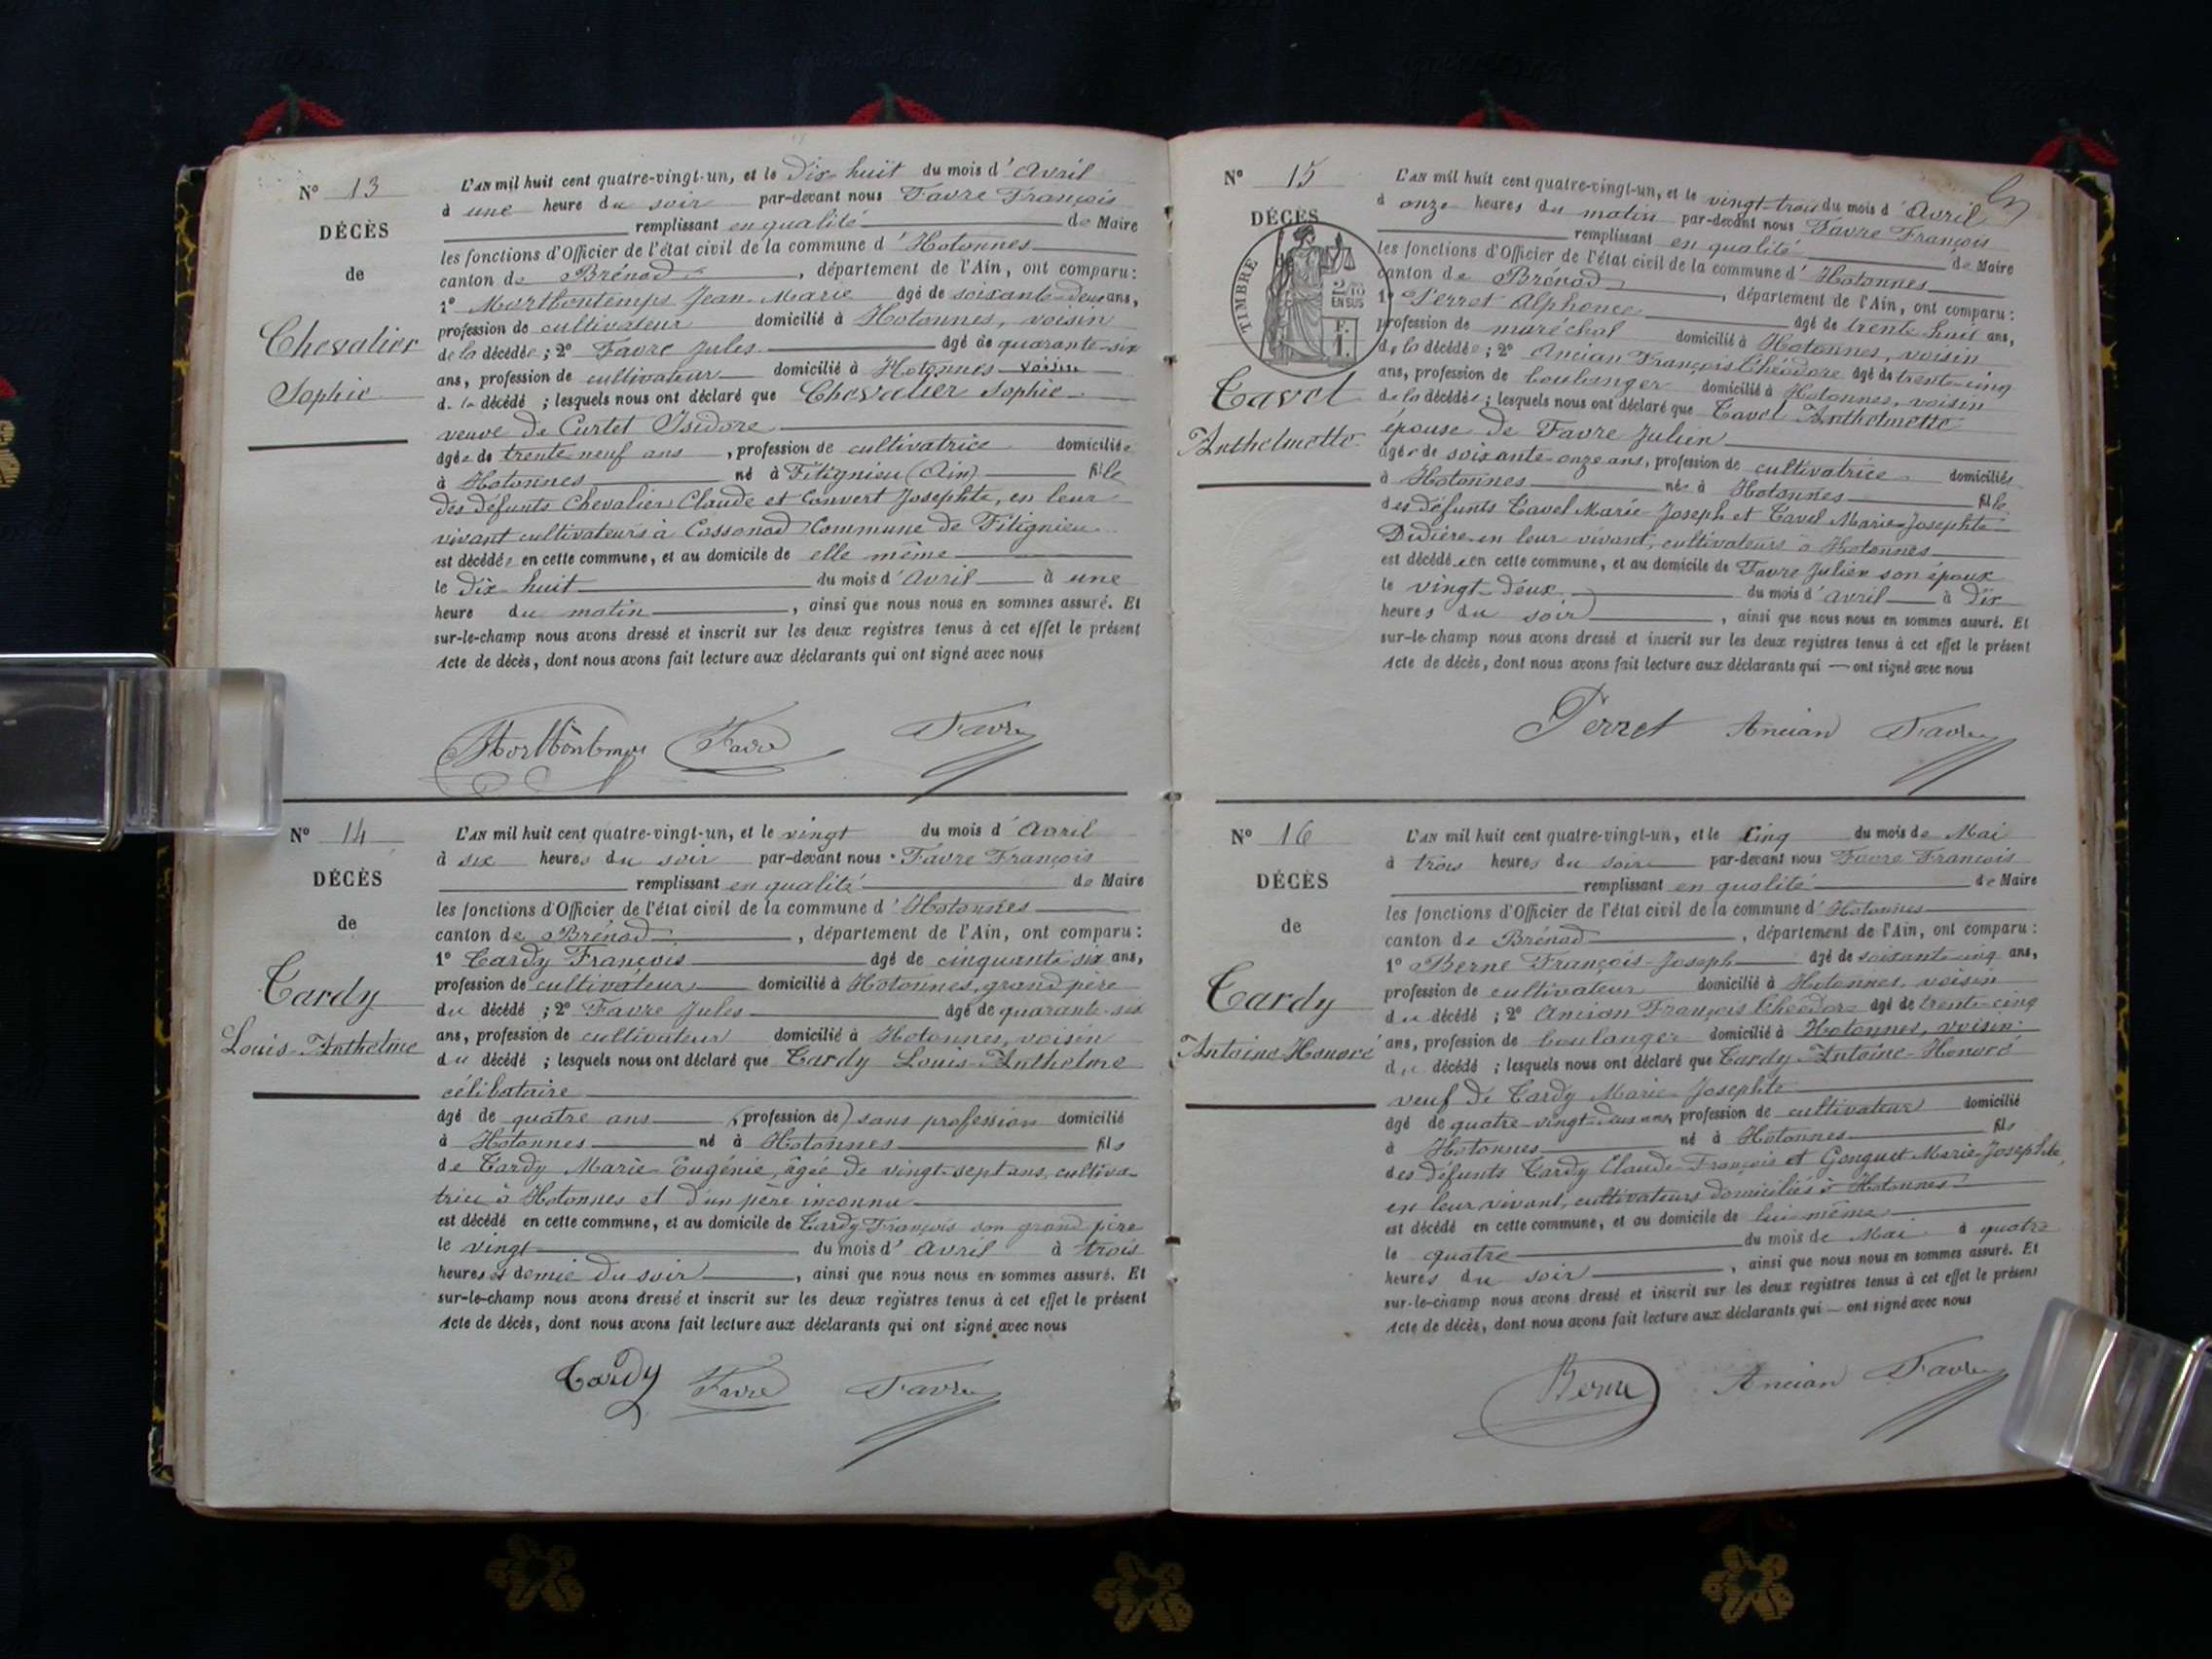 N° 13
DÉCÈS
de
Chevalier
Sophie
L'AN mil huit cent quatre-vingt-un, et le Dix-huit du mois d'Avril
à une heure du soir par-devant nous Favre François
remplissant en qualité de Maire
les fonctions d'Officier de l'état civil de la commune d'Hotonnes
canton de Brénod, département de l'Ain, ont comparu:
1° Marthontemps Jean-Marie âgé de soixante-deux ans,
profession de cultivateur domicilié à Hotonnes, voisin
de la décédée; 2° Favre Jules âgé de quarante-six
ans, profession de cultivateur domicilié à Hotonnes voisin
d. la décédé ; lesquels nous ont déclaré que Chevalier Sophie
veuve de Curtet Isidore
âgée de trente neuf ans, profession de cultivatrice domiciliée
à Hotonnes né à Fitignieu (Ain) fille
des défunts Chevalier Claude et Convert Josephte, en leur
vivant cultivateurs à Cossonod Commune de Fitignieu
est décédée en cette commune, et au domicile de elle même
le Dix huit du mois d'Avril à une
heure du matin, ainsi que nous nous en sommes assuré. Et
sur-le-champ nous avons dressé et inscrit sur les deux registres tenus à cet effet le présent
Acte de décès, dont nous avons fait lecture aux déclarants qui ont signé avec nous
Favre Favre
N° 14
DÉCÈS
de
Tardy
Louis-Anthelme
L'AN mil huit cent quatre-vingt-un, et le vingt du mois d'Avril
à six heures du soir par-devant nous Favre François
remplissant en qualité de Maire
les fonctions d'Officier de l'état civil de la commune d'Hotonnes
canton de Brénod, département de l'Ain, ont comparu:
1° Tardy François âgé de cinquante six ans,
profession de cultivateur domicilié à Hotonnes, grand père
du décédé ; 2° Favre Jules âgé de quarante-six
ans, profession de cultivateur domicilié à Hotonnes, voisin
du décédé ; lesquels nous ont déclaré que Tardy Louis-Anthelme
célibataire
âgé de quatre ans (profession de) sans profession domicilié
à Hotonnes né à Hotonnes fils
de Tardy Marie-Eugénie, âgée de vingt-sept ans, cultiva-
trice à Hotonnes et d'un père inconnu
est décédé en cette commune, et au domicile de Tardy François son grand père
le vingt du mois d'Avril à trois
heures et demie du soir, ainsi que nous nous en sommes assuré. Et
sur-le-champ nous avons dressé et inscrit sur les deux registres tenus à cet effet le présent
Acte de décès, dont nous avons fait lecture aux déclarants qui ont signé avec nous
Tardy Favre Favre
N° 15
DÉCÈS
TIMBRE
2/10
EN SUS
F.
1.
Tavel
Anthelmette
L'AN mil huit cent quatre-vingt-un, et le vingt-trois du mois d'Avril
à onze heures du matin par-devant nous Favre François
remplissant en qualité de Maire
les fonctions d'Officier de l'état civil de la commune d'Hotonnes
canton de Brénod, département de l'Ain, ont comparu:
1° Perret Alphonce âgé de trente-huit ans,
profession de maréchal domicilié à Hotonnes, voisin
de la décédée; 2° Ancian François Théodore âgé de trente-cinq
ans, profession de boulanger domicilié à Hotonnes, voisin
de la décédée; lesquels nous ont déclaré que Tavel Anthelmette
épouse de Favre Julien
âgée de soixante-onze ans, profession de cultivatrice domiciliée
à Hotonnes née à Hotonnes fille
des défunts Tavel Marie-Joseph et Tavel Marie-Josephte
Didière en leur vivant, cultivateurs à Hotonnes
est décédée en cette commune, et au domicile de Favre Julien son époux
le vingt-deux du mois d'Avril à dix
heures du soir, ainsi que nous nous en sommes assuré. Et
sur-le-champ nous avons dressé et inscrit sur les deux registres tenus à cet effet le présent
Acte de décès, dont nous avons fait lecture aux déclarants qui — ont signé avec nous
Perret Ancian Favre
N° 16
DÉCÈS
de
Tardy
Antoine-Honoré
L'AN mil huit cent quatre-vingt-un, et le Cinq du mois de Mai
à trois heures du soir par-devant nous Favre François
remplissant en qualité de Maire
les fonctions d'Officier de l'état civil de la commune d'Hotonnes
canton de Brénod, département de l'Ain, ont comparu:
1° Berne François-Joseph âgé de soixante-cinq ans,
profession de cultivateur domicilié à Hotonnes, voisin
du décédé ; 2° Ancian François Théodore âgé de trente-cinq
ans, profession de boulanger domicilié à Hotonnes, voisin
du décédé ; lesquels nous ont déclaré que Tardy Antoine-Honoré
veuf de Tardy Marie-Josephte
âgé de quatre-vingt-deux ans, profession de cultivateur domicilié
à Hotonnes né à Hotonnes fils
des défunts Tardy Claude-François et Gonguet Marie-Josephte,
en leur vivant, cultivateurs domiciliés à Hotonnes
est décédé en cette commune, et au domicile de lui même
le quatre du mois de Mai à quatre
heures du soir, ainsi que nous nous en sommes assuré. Et
sur-le-champ nous avons dressé et inscrit sur les deux registres tenus à cet effet le présent
Acte de décès, dont nous avons fait lecture aux déclarants qui — ont signé avec nous
Berne Ancian Favre